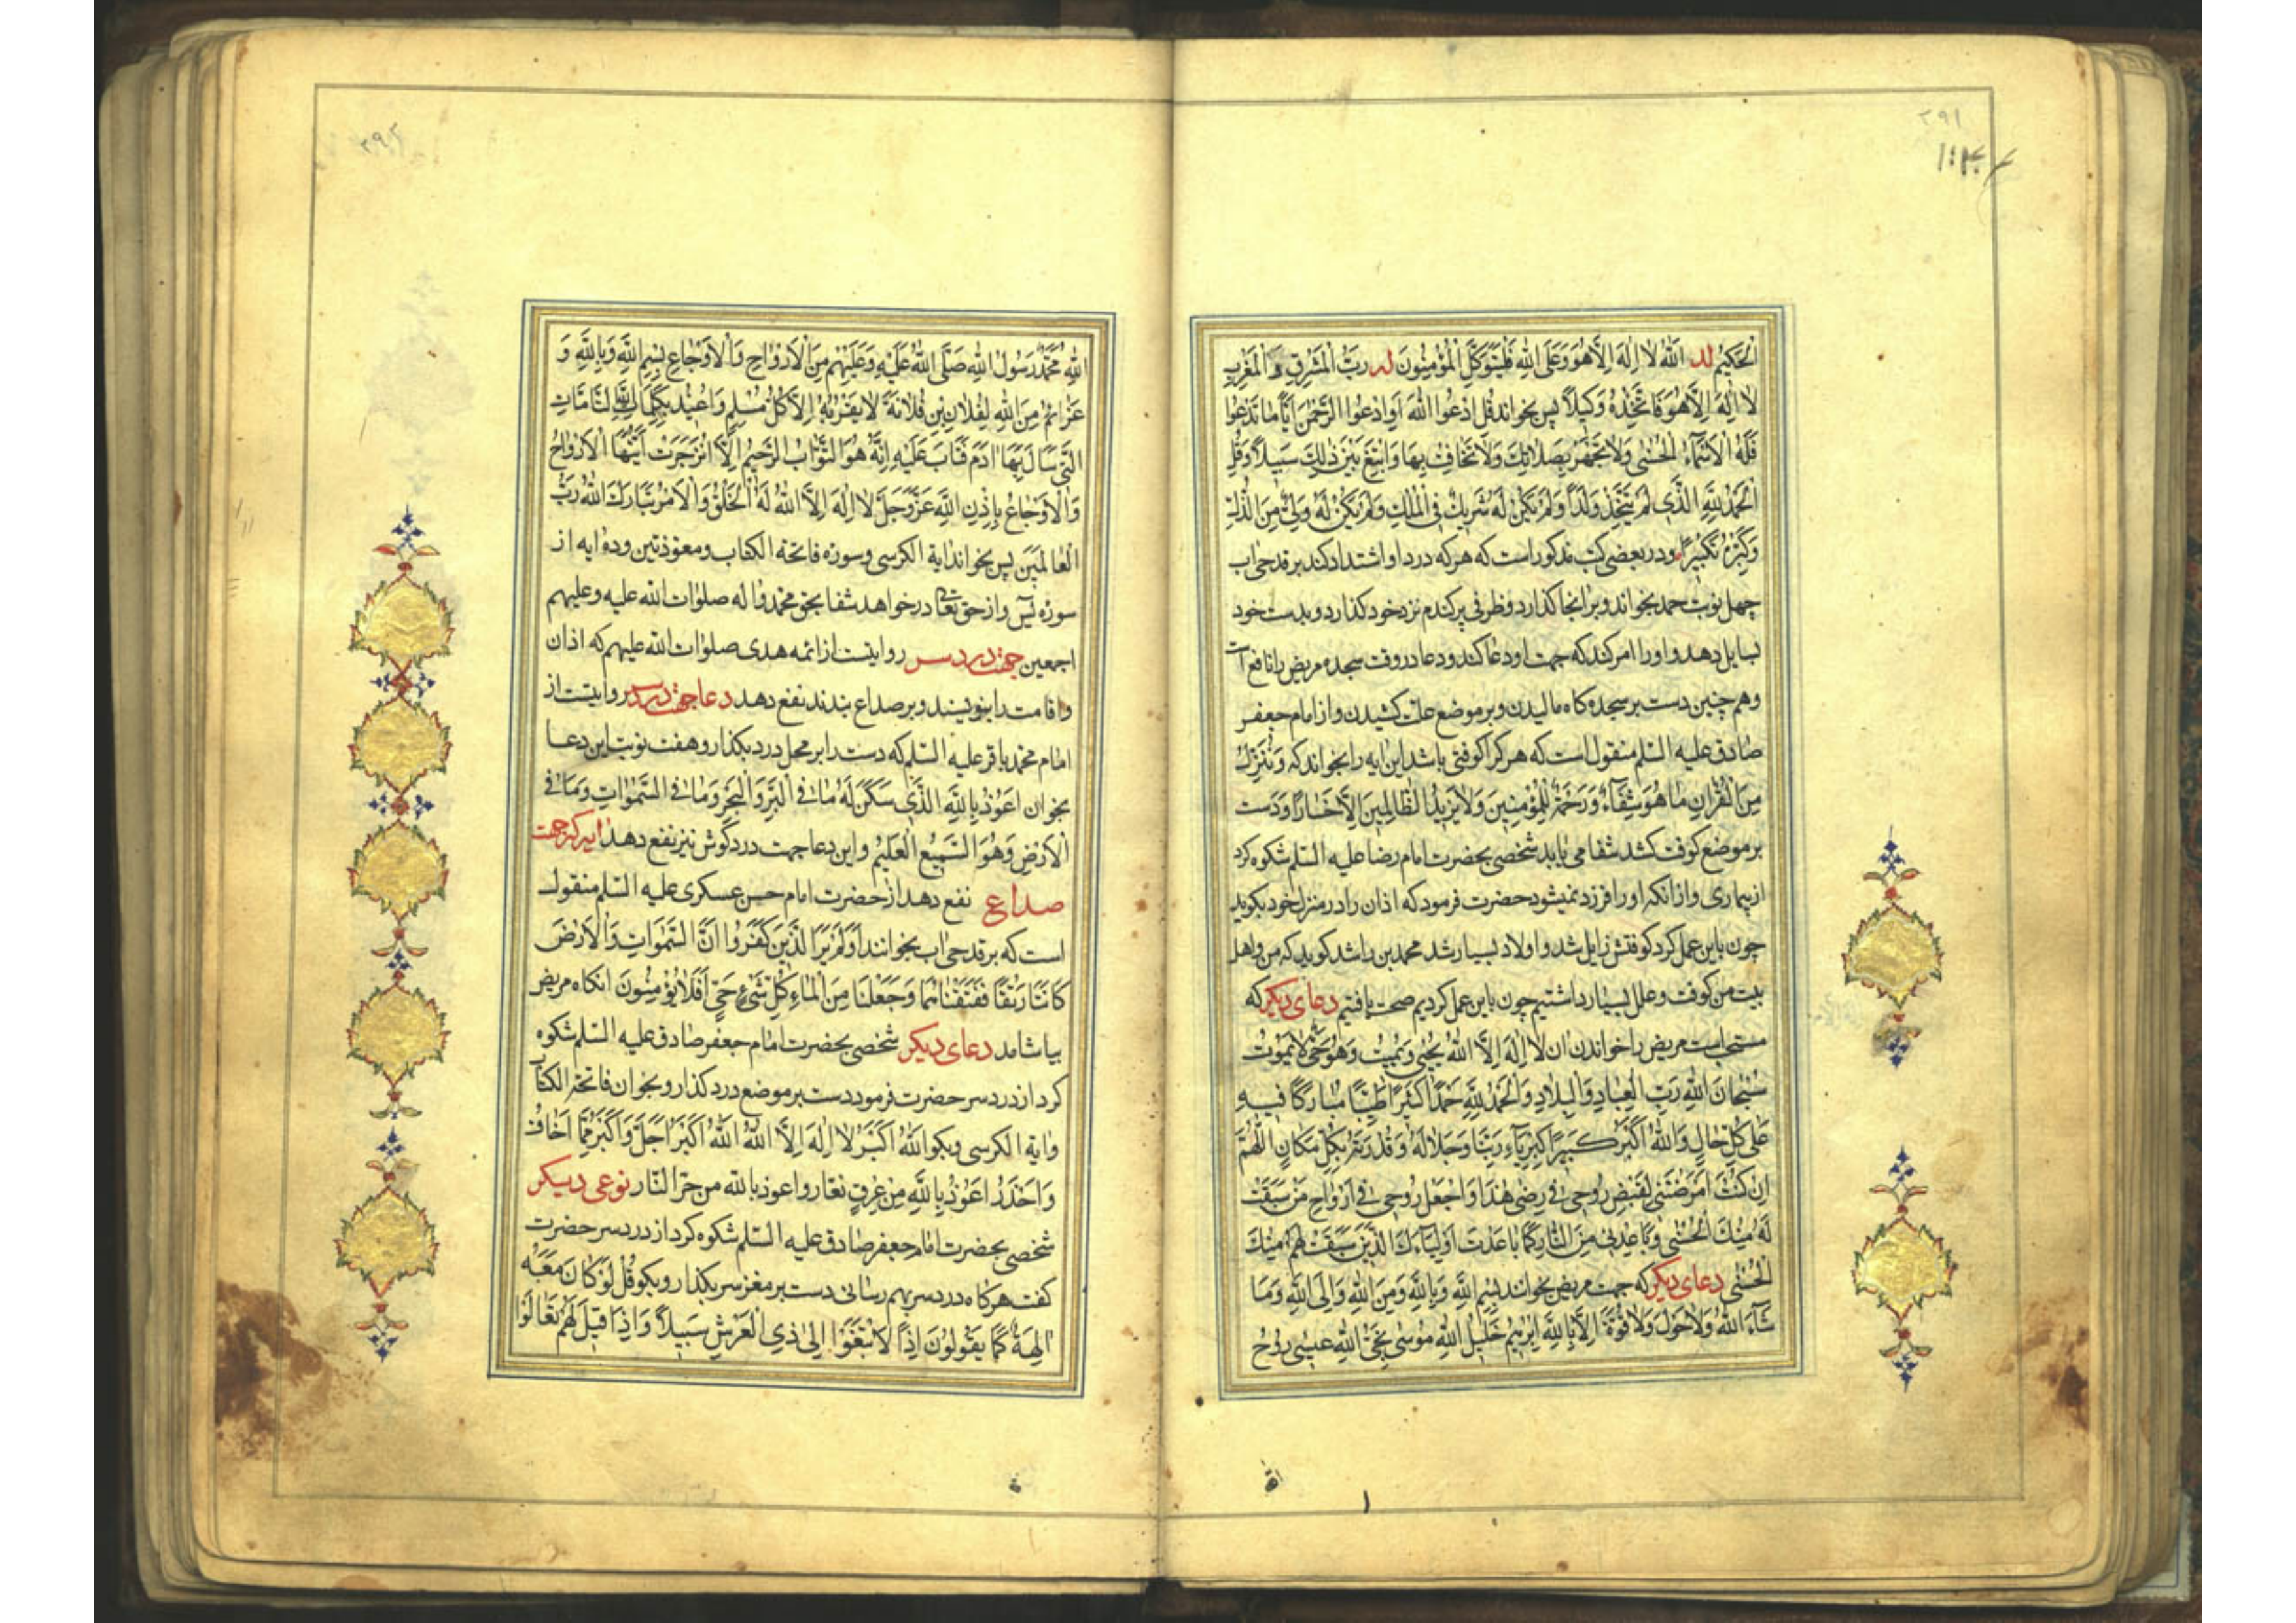 ٢٩١
الْحَكِيمُ لد اللهُ لا اِلهَ اِلاَّ هُوَ وَعَلَى اللهِ فَلْيَتَوَكَّلِ الْمُؤْمِنُونَ لر رَبُّ الْمَشْرِقِ وَ الْمَغْرِبِ
لا اِلهَ اِلاَّ هُوَ فَاتَّخِذْهُ وَكِيلاً پس بخواند قُلِ ادْعُوا اللهَ اَوِ ادْعُوا الرَّحْمنَ اَيًّا مَا تَدْعُوا
فَلَهُ الْاَسْمَاءُ الْحُسْنى وَلا تَجْهَرْ بِصَلاتِكَ وَلا تُخَافِتْ بِهَا وَابْتَغِ بَيْنَ ذلِكَ سَبِيلاً وَقُلِ
الْحَمْدُ لِلّهِ الَّذِي لَمْ يَتَّخِذْ وَلَداً وَلَمْ يَكُنْ لَهُ شَرِيكٌ فِي الْمُلْكِ وَلَمْ يَكُنْ لَهُ وَلِيٌّ مِنَ الذُّلِّ
وَكَبِّرْهُ تَكْبِيراً ودر بعضى كتب مذكور است كه هر كه درد او اشتداد كند بر قدحى اب
چهل نوبت حمد بخواند و بر انجا كذارد و ظرفى پر كندم نزد خود كذارد و بدست خود
بسايل دهد و او را امر كند كه جهت او دعا كند و دعا در وقت سجده مريض را نافع است
وهم چنين دست بر سجده كاه ماليدن و بر موضع علت كشيدن و از امام جعفر
صادق عليه السّلم منقول است كه هر كرا كوفتى باشد اين ايه را بخواند كه وَنُنَزِّلُ
مِنَ الْقُرْانِ مَا هُوَ شِفَاءٌ وَرَحْمَةٌ لِلْمُؤْمِنِينَ وَلا يَزِيدُ الظَّالِمِينَ اِلاَّ خَسَاراً و دست
بر موضع كوفت كشد شفا مى يابد شخصى بحضرت امام رضا عليه السّلم شكوه كرد
از بيمارى و از انكه او را فرزند نميشود حضرت فرمود كه اذان را در منزل خود بكويد
چون باين عمل كرد كوفتش زايل شد و اولاد بسيار شد محمد بن راشد كويد كه من و اهل
بيت من كوفت و علل بسيار داشتيم چون باين عمل كرديم صحت يافتيم دعاى ديكر كه
مستحب است مريض را خواندن ان لا اِلهَ اِلاَّ اللهُ يُحْيِي وَيُمِيتُ وَهُوَ حَيٌّ لا يَمُوتُ
سُبْحَانَ اللهِ رَبِّ الْعِبَادِ وَالْبِلادِ وَالْحَمْدُ لِلّهِ حَمْداً كَثِيراً طَيِّباً مُبَارَكاً فِيهِ
عَلى كُلِّ حَالٍ وَاللهُ اَكْبَرُ كَبِيراً كِبْرِيَاءَ رَبِّنَا وَجَلالَهُ وَقُدْرَتَهُ بِكُلِّ مَكَانٍ اَللّهُمَّ
اِنْ كُنْتَ اَمْرَضْتَنِي لِقَبْضِ رُوحِي فِي مَرَضِي هذَا وَاجْعَلْ رُوحِي فِي اَرْوَاحِ مَنْ سَبَقَتْ
لَهُ مِنْكَ الْحُسْنى وَبَاعِدْنِي مِنَ النَّارِ كَمَا بَاعَدْتَ اَوْلِيَاءَكَ الَّذِينَ سَبَقَتْ لَهُمْ مِنْكَ
الْحُسْنى دعاى ديكر كه جهت مريض بخوانند بِسْمِ اللهِ وَبِاللّهِ وَمِنَ اللهِ وَاِلَى اللهِ وَمَا
شَاءَ اللهُ وَلا حَوْلَ وَلا قُوَّةَ اِلاَّ بِاللّهِ اِبْرهِيمُ خَلِيلُ اللهِ مُوسى نَجِيُّ اللهِ عِيسى رُوحُ
٢٩٢
اللهِ مُحَمَّدٌ رَسُولُ اللهِ صَلَّى اللهُ عَلَيْهِ وَعَلَيْهِمْ مِنَ الْاَرْوَاحِ وَالْاَوْجَاعِ بِسْمِ اللهِ وَبِاللّهِ وَ
عَزَائِمُ مِنَ اللهِ لِفُلانِ بْنِ فُلانَةَ لا يَقْرَبُهُ اِلاَّ كُلُّ مُسْلِمٍ وَاُعِيذُهُ بِكَلِمَاتِ اللهِ التَّامَّاتِ
الَّتِي سَاَلَ بِهَا ادَمُ فَتَابَ عَلَيْهِ اِنَّهُ هُوَ التَّوَّابُ الرَّحِيمُ اِلاَّ انْزَجَرَتْ اَيَّتُهَا الْاَرْوَاحُ
وَالْاَوْجَاعُ بِاِذْنِ اللهِ عَزَّ وَجَلَّ لا اِلهَ اِلاَّ اللهُ لَهُ الْخَلْقُ وَالْاَمْرُ تَبَارَكَ اللهُ رَبُّ
الْعَالَمِينَ پس بخواند اية الكرسى وسوره فاتحة الكتاب ومعوّذتين وده ايه از
سوره يس واز حق تعالى درخواهد شفا بحق محمد واله صلوات الله عليه وعليهم
اجمعين جهت درد سر روايتست از ائمه هدى صلوات الله عليهم كه اذان
واقامت را بنويسند و بر صداع بندند نفع دهد دعا جهت درد سر روايتست از
امام محمد باقر عليه السّلم كه دست را بر محل درد بكذار و هفت نوبت اين دعا
بخوان اَعُوذُ بِاللّهِ الَّذِي سَكَنَ لَهُ مَا فِي الْبَرِّ وَالْبَحْرِ وَمَا فِي السَّموَاتِ وَمَا فِي
الْاَرْضِ وَهُوَ السَّمِيعُ الْعَلِيمُ واين دعا جهت درد گوش نيز نفع دهد ايه كه جهت
صداع نفع دهد از حضرت امام حسن عسكرى عليه السّلم منقول
است كه بر قدحى اب بخوانند اَوَلَمْ يَرَ الَّذِينَ كَفَرُوا اَنَّ السَّموَاتِ وَالْاَرْضَ
كَانَتَا رَتْقاً فَفَتَقْنَاهُمَا وَجَعَلْنَا مِنَ الْمَاءِ كُلَّ شَيْءٍ حَيٍّ اَفَلا يُؤْمِنُونَ انكاه مريض
بياشامد دعاى ديكر شخصى بحضرت امام جعفر صادق عليه السّلم شكوه
كرد از درد سر حضرت فرمود دست بر موضع درد كذار وبخوان فاتحة الكتاب
واية الكرسى وبكو اللهُ اَكْبَرُ لا اِلهَ اِلاَّ اللهُ اللهُ اَكْبَرُ اَجَلُّ وَاَكْبَرُ مِمَّا اَخَافُ
وَاَحْذَرُ اَعُوذُ بِاللّهِ مِنْ عِرْقٍ نَعَّارٍ واعوذ بالله من حرّ النّار نوعى ديكر
شخصى بحضرت امام جعفر صادق عليه السّلم شكوه كرد از درد سر حضرت
كفت هر كاه درد سر بهم رسانى دست بر مغز سر بكذار وبكو قُلْ لَوْ كَانَ مَعَهُ
الِهَةٌ كَمَا يَقُولُونَ اِذاً لاَبْتَغَوْا اِلى ذِي الْعَرْشِ سَبِيلاً وَاِذَا قِيلَ لَهُمْ تَعَالَوْا